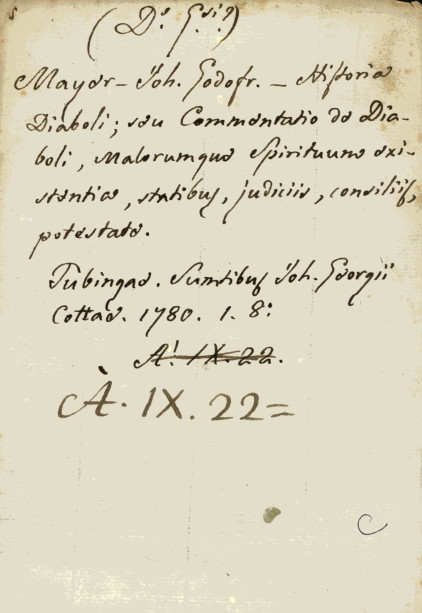 (D: G:i?)
Mayer – Joh. Godofr. – Historia
Diaboli; seu Commentatio de Dia-
boli, Malorumque Spirituum exi-
stentia, statibus, judiciis, consiliis,
potestate.
Tubingae. Sumtibus Joh. Georgii
Cottae. 1780. 1. 8:
A. IX. 22.
A. IX. 22=